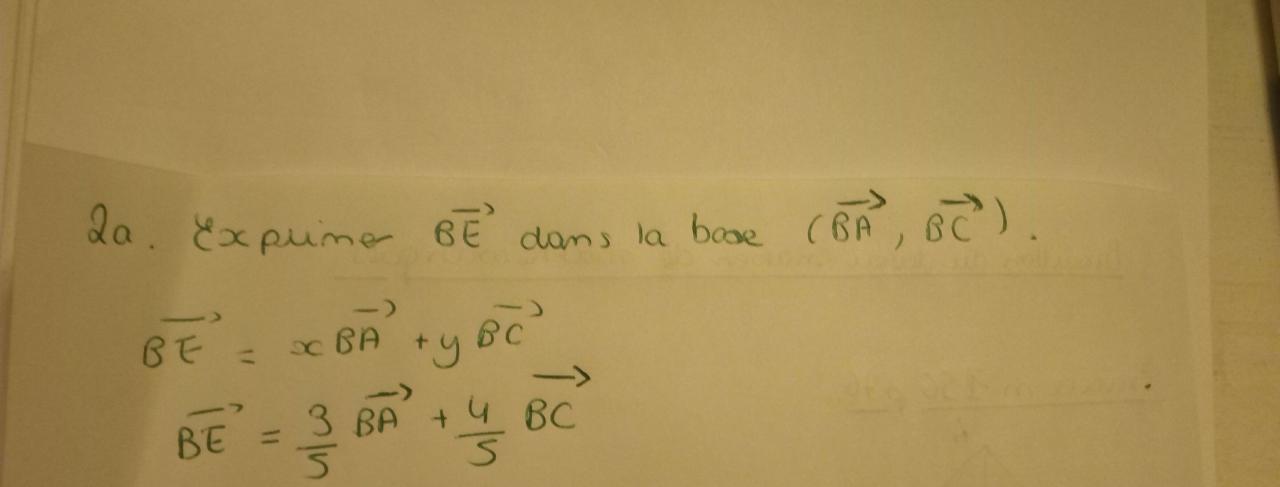 2a. Exprimer \overrightarrow{BE} dans la base (\overrightarrow{BA}, \overrightarrow{BC}).
\overrightarrow{BE} = x \overrightarrow{BA} + y \overrightarrow{BC}
\overrightarrow{BE} = \frac{3}{5} \overrightarrow{BA} + \frac{4}{5} \overrightarrow{BC}